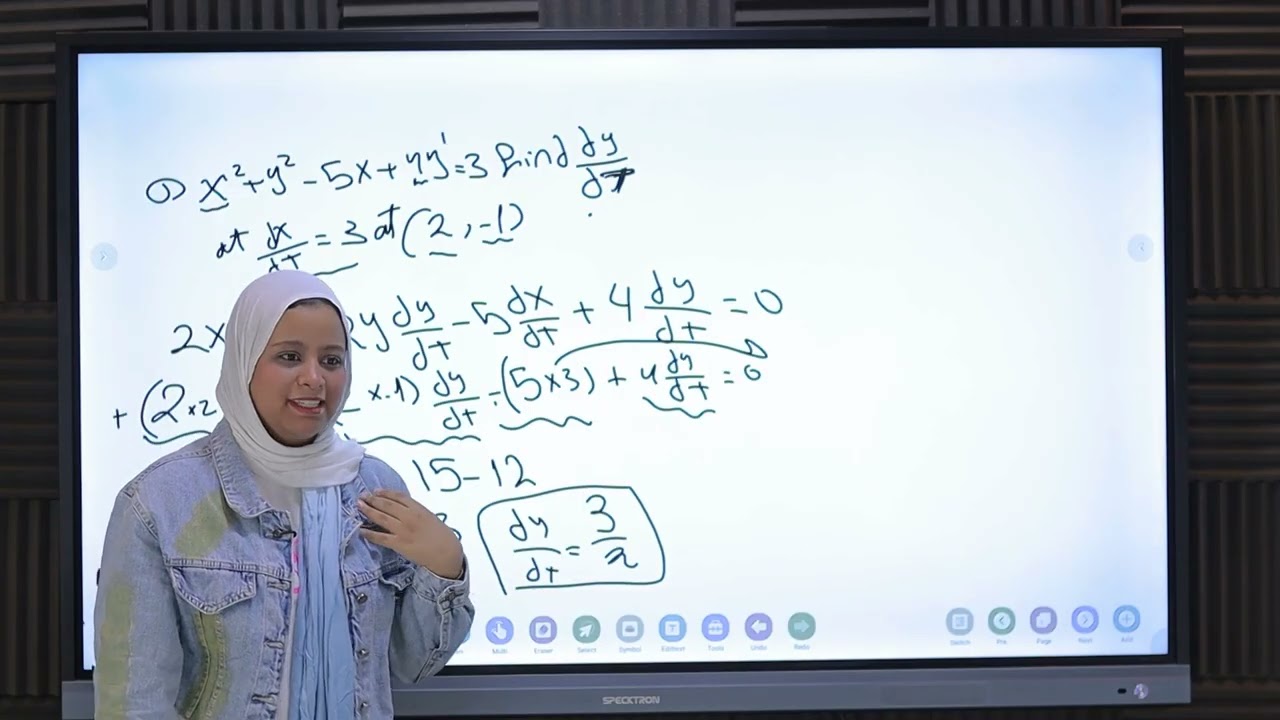 ① x² + y² - 5x + 4y' = 3 find dy/dT
at dx/dT = 3 at (2, -1)
2x 2y dy/dt - 5 dx/dt + 4 dy/dt = 0
+ (2×2 ×-1) dy/dt - (5×3) + 4 dy/dt = 0
15 - 12
3 dy/dt = 3/2
Multi Eraser Select Symbol Editext Tools Undo Redo Sketch Pre Page Next Add
SPECKTRON